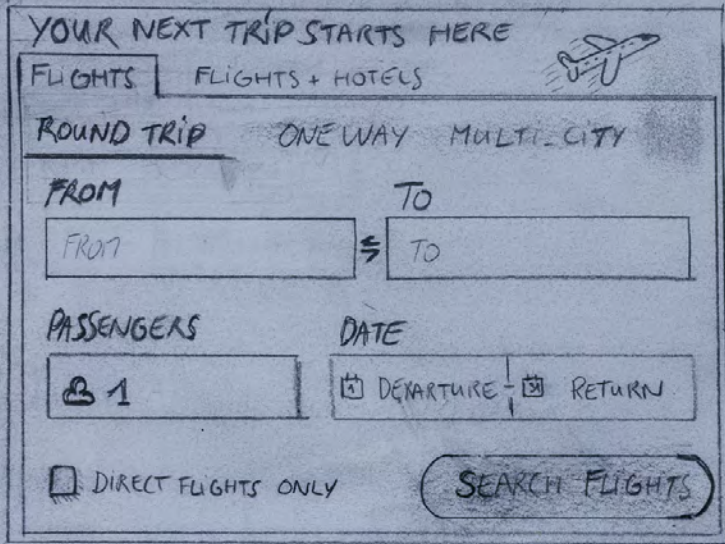 YOUR NEXT TRIP STARTS HERE
FLIGHTS FLIGHTS + HOTELS
ROUND TRIP ONE WAY MULTI-CITY
FROM TO
FROM TO
PASSENGERS DATE
1 DEPARTURE RETURN
DIRECT FLIGHTS ONLY SEARCH FLIGHTS